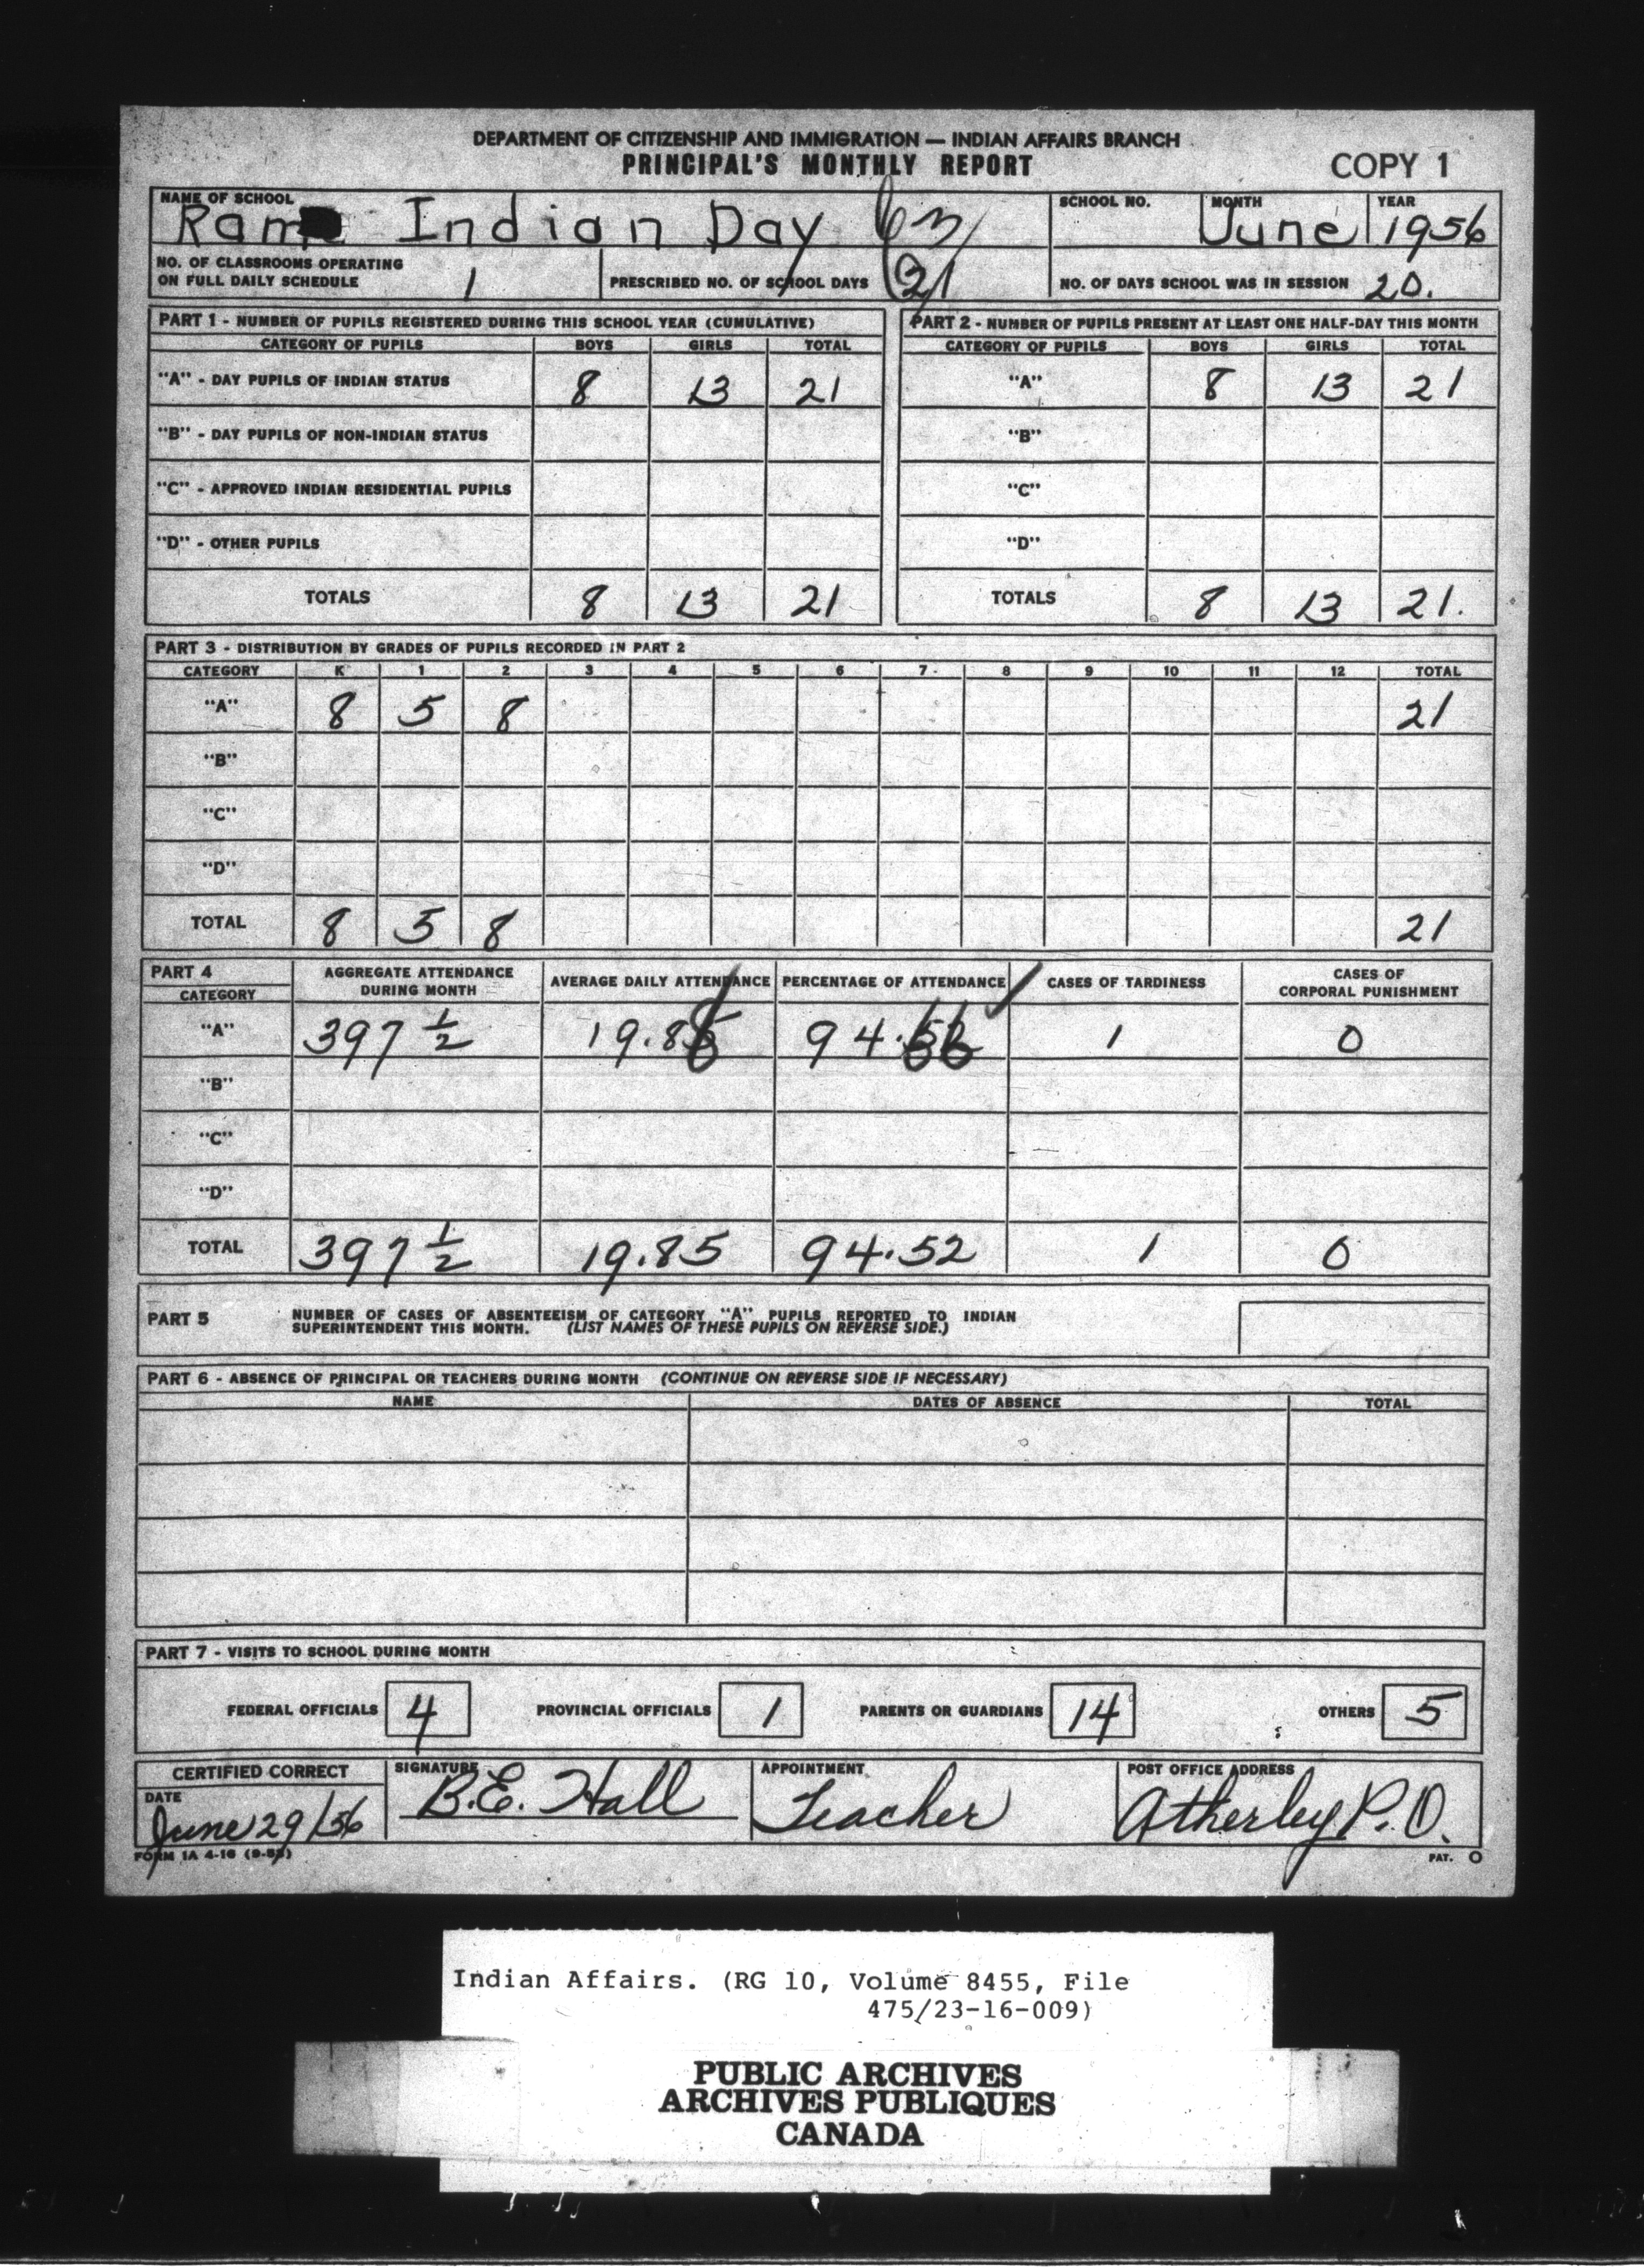 DEPARTMENT OF CITIZENSHIP AND IMMIGRATION — INDIAN AFFAIRS BRANCH
PRINCIPAL'S MONTHLY REPORT
COPY 1
NAME OF SCHOOL SCHOOL NO. MONTH YEAR
Rama Indian Day June 1956
NO. OF CLASSROOMS OPERATING
ON FULL DAILY SCHEDULE 1 PRESCRIBED NO. OF SCHOOL DAYS 21 NO. OF DAYS SCHOOL WAS IN SESSION 20.
PART 1 - NUMBER OF PUPILS REGISTERED DURING THIS SCHOOL YEAR (CUMULATIVE)
CATEGORY OF PUPILS BOYS GIRLS TOTAL
"A" - DAY PUPILS OF INDIAN STATUS 8 13 21
"B" - DAY PUPILS OF NON-INDIAN STATUS
"C" - APPROVED INDIAN RESIDENTIAL PUPILS
"D" - OTHER PUPILS
TOTALS 8 13 21
PART 2 - NUMBER OF PUPILS PRESENT AT LEAST ONE HALF-DAY THIS MONTH
CATEGORY OF PUPILS BOYS GIRLS TOTAL
"A" 8 13 21
"B"
"C"
"D"
TOTALS 8 13 21.
PART 3 - DISTRIBUTION BY GRADES OF PUPILS RECORDED IN PART 2
CATEGORY K 1 2 3 4 5 6 7 8 9 10 11 12 TOTAL
"A" 8 5 8 21
"B"
"C"
"D"
TOTAL 8 5 8 21
PART 4
CATEGORY AGGREGATE ATTENDANCE DURING MONTH AVERAGE DAILY ATTENDANCE PERCENTAGE OF ATTENDANCE CASES OF TARDINESS CASES OF CORPORAL PUNISHMENT
"A" 397 1/2 19.88 94.66 1 0
"B"
"C"
"D"
TOTAL 397 1/2 19.85 94.52 1 0
PART 5 NUMBER OF CASES OF ABSENTEEISM OF CATEGORY "A" PUPILS REPORTED TO INDIAN
SUPERINTENDENT THIS MONTH. (LIST NAMES OF THESE PUPILS ON REVERSE SIDE.)
PART 6 - ABSENCE OF PRINCIPAL OR TEACHERS DURING MONTH (CONTINUE ON REVERSE SIDE IF NECESSARY)
NAME DATES OF ABSENCE TOTAL
PART 7 - VISITS TO SCHOOL DURING MONTH
FEDERAL OFFICIALS 4 PROVINCIAL OFFICIALS 1 PARENTS OR GUARDIANS 14 OTHERS 5
CERTIFIED CORRECT SIGNATURE APPOINTMENT POST OFFICE ADDRESS
DATE
June 29/56 B.E. Hall Teacher Atherley P.O.
FORM 1A 4-16 PAT. O
Indian Affairs. (RG 10, Volume 8455, File
475/23-16-009)
PUBLIC ARCHIVES
ARCHIVES PUBLIQUES
CANADA